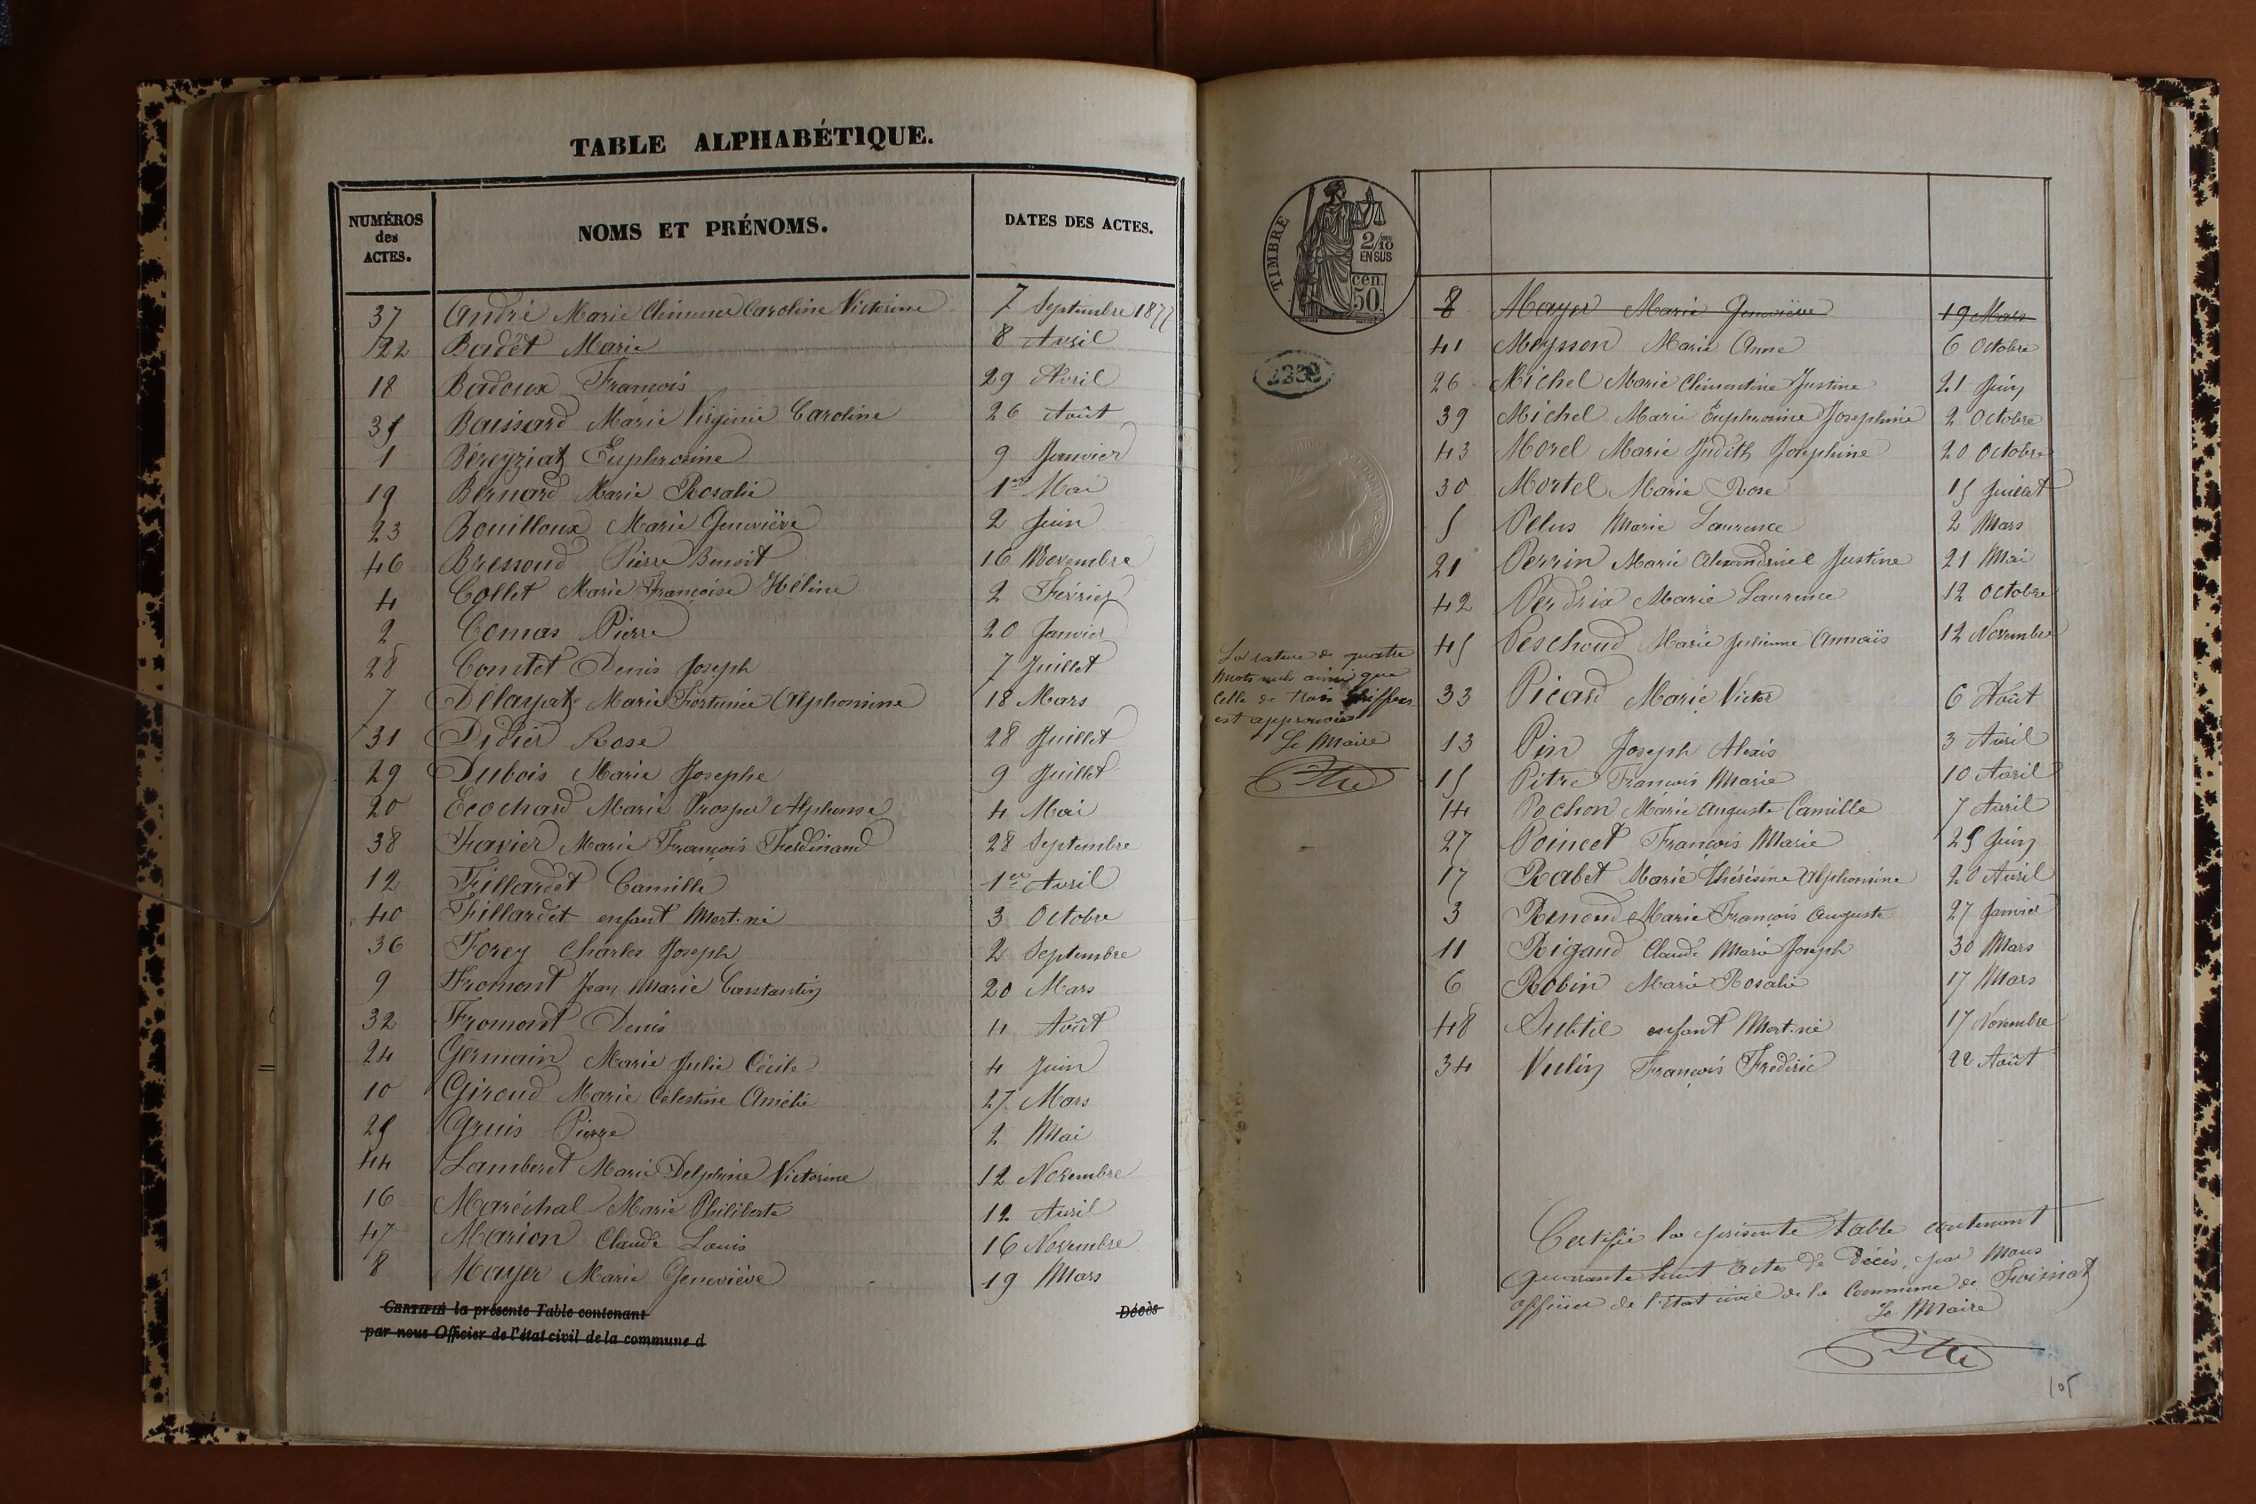 TABLE ALPHABÉTIQUE.
NUMÉROS des ACTES. NOMS ET PRÉNOMS. DATES DES ACTES.
37 André Marie Caroline Victorine 7 Septembre 1877
22 Badet Marie 8 Avril
18 Badoux François 29 Avril
35 Baissard Marie Virginie Caroline 26 Août
1 Béreyziat Euphrosine 9 Janvier
19 Bernard Marie Rosalie 1er Mai
23 Bouilloux Marie Geneviève 2 Juin
46 Bressoud Pierre Benoit 16 Novembre
4 Collet Marie Françoise Hélène 2 Février
2 Comas Pierre 20 Janvier
28 Comtet Denis Joseph 7 Juillet
7 Délayat Marie Fortunée Alphonsine 18 Mars
31 Didier Rose 28 Juillet
29 Dubois Marie Josephe 9 Juillet
20 Ecochard Marie Prosper Alphonse 4 Mai
38 Favier Marie François Ferdinand 28 Septembre
12 Fillardet Camille 1er Avril
40 Fillardet enfant Mort-né 3 Octobre
36 Forey Charles Joseph 2 Septembre
9 Fromont Jean Marie Constantin 20 Mars
32 Fromont Denis 4 Août
24 Germain Marie Julie Cécile 4 Juin
10 Giroud Marie Célestine Amélie 27 Mars
25 Gruis Pierre 2 Mai
44 Lamberet Marie Delphine Victorine 12 Novembre
16 Maréchal Marie Philiberte 12 Avril
47 Marion Claude Louis 16 Novembre
8 Mayer Marie Geneviève 19 Mars
CERTIFIÉ la présente Table contenant Décès
par nous Officier de l'état civil de la commune d
TIMBRE
2/10
EN SUS
cen.
50
2350
La rature de quatre
mots nuls ainsi que
celle de trois chiffres
est approuvée
Le Maire
Pitre
8 Mayer Marie Geneviève 19 Mars
41 Meysson Marie Anne 6 Octobre
26 Michel Marie Clémentine Justine 21 Juin
39 Michel Marie Euphrosine Josephine 2 Octobre
43 Morel Marie Judith Josephine 20 Octobre
30 Mortel Marie Rose 15 Juillet
5 Pelus Marie Laurence 2 Mars
21 Perrin Marie Alexandrine Justine 21 Mai
42 Perdrix Marie Laurence 12 Octobre
45 Peschoud Marie Julienne Annaïs 12 Novembre
33 Picard Marie Victor 6 Août
13 Pin Joseph Alexis 3 Avril
15 Pitre François Marie 10 Avril
14 Pochon Marie Auguste Camille 7 Avril
27 Poincet François Marie 25 Juin
17 Rabet Marie Thérésine Alphonsine 20 Avril
3 Renoud Marie François Auguste 27 Janvier
11 Rigaud Claude Marie Joseph 30 Mars
6 Robin Marie Rosalie 17 Mars
48 Subtil enfant Mort-né 17 Novembre
34 Vulin François Frédéric 22 Août
Certifié la présente table contenant
quarante huit actes de Décès, par Nous
officier de l'état civil de la Commune de Foissiat
Le Maire
Pitre
105